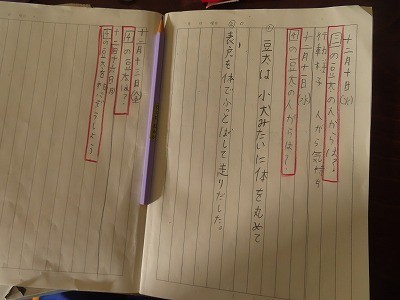 十二月十日(火)
三の豆太の人がらは?
行動 様子 人がら 気持ち
十二月十一日(水)
四の豆太の人がらは?
豆太は小犬みたいに体を丸めて
表戸を体でふっとばして走りだした。
十二月十三日(金)
四の豆太は?